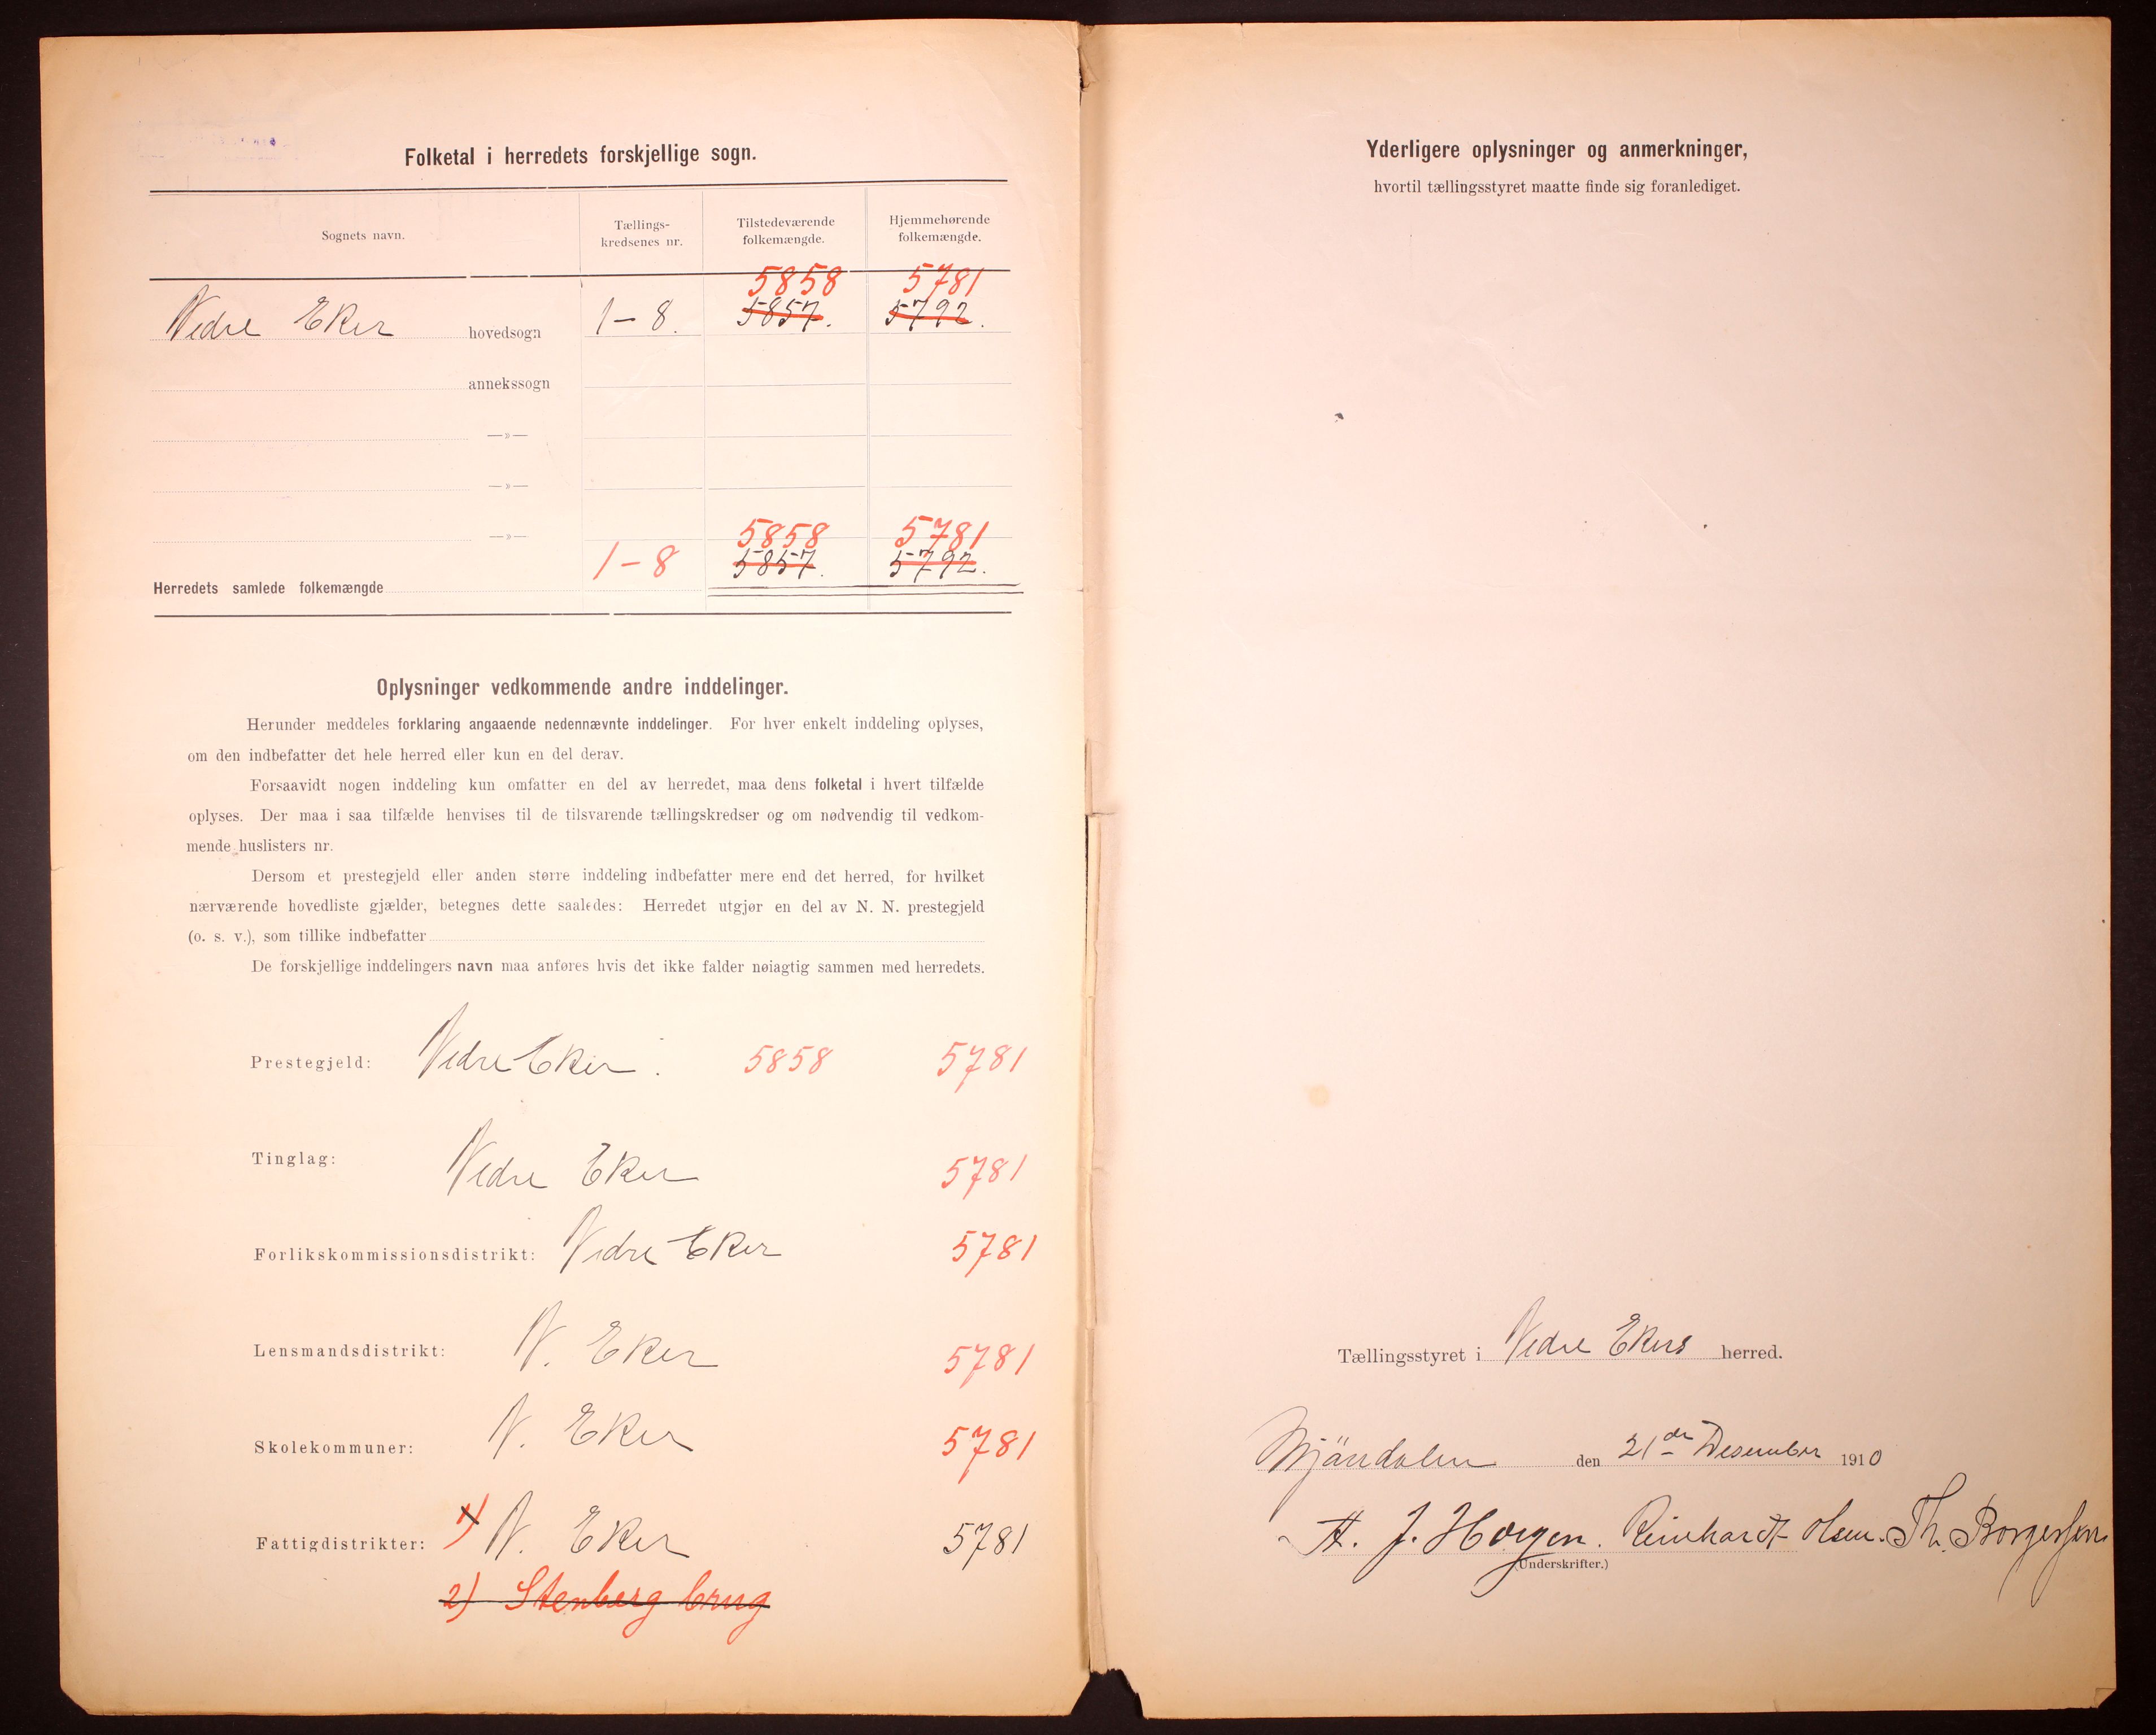 Folketal i herredets forskjellige sogn.
Sognets navn.
Tællings-
kredsenes nr.
Tilstedeværende
folkemængde.
Hjemmehørende
folkemængde.
5858 5781
Nedre Eker hovedsogn 1-8. 5857. 5792.
annekssogn
—»—
—»—
—»— 5858 5781
1-8 5857. 5792.
Herredets samlede folkemængde
Oplysninger vedkommende andre inddelinger.
Herunder meddeles forklaring angaaende nedennævnte inddelinger. For hver enkelt inddeling oplyses,
om den indbefatter det hele herred eller kun en del derav.
Forsaavidt nogen inddeling kun omfatter en del av herredet, maa dens folketal i hvert tilfælde
oplyses. Der maa i saa tilfælde henvises til de tilsvarende tællingskredser og om nødvendig til vedkom-
mende huslisters nr.
Dersom et prestegjeld eller anden større inddeling indbefatter mere end det herred, for hvilket
nærværende hovedliste gjælder, betegnes dette saaledes: Herredet utgjør en del av N. N. prestegjeld
(o. s. v.), som tillike indbefatter
De forskjellige inddelingers navn maa anføres hvis det ikke falder nøiagtig sammen med herredets.
Prestegjeld: Nedre Eker. 5858 5781
Tinglag: Nedre Eker 5781
Forlikskommissionsdistrikt: Nedre Eker 5781
Lensmandsdistrikt: N. Eker 5781
Skolekommuner: N. Eker 5781
Fattigdistrikter: 1) N. Eker 5781
2) Stenberg brug
Yderligere oplysninger og anmerkninger,
hvortil tællingsstyret maatte finde sig foranlediget.
Tællingsstyret i Nedre Ekers herred.
Mjöndalen den 21de Desember 1910
A. J. Horgen. Reinhardt Olsen. Th. Borgersen
(Underskrifter.)